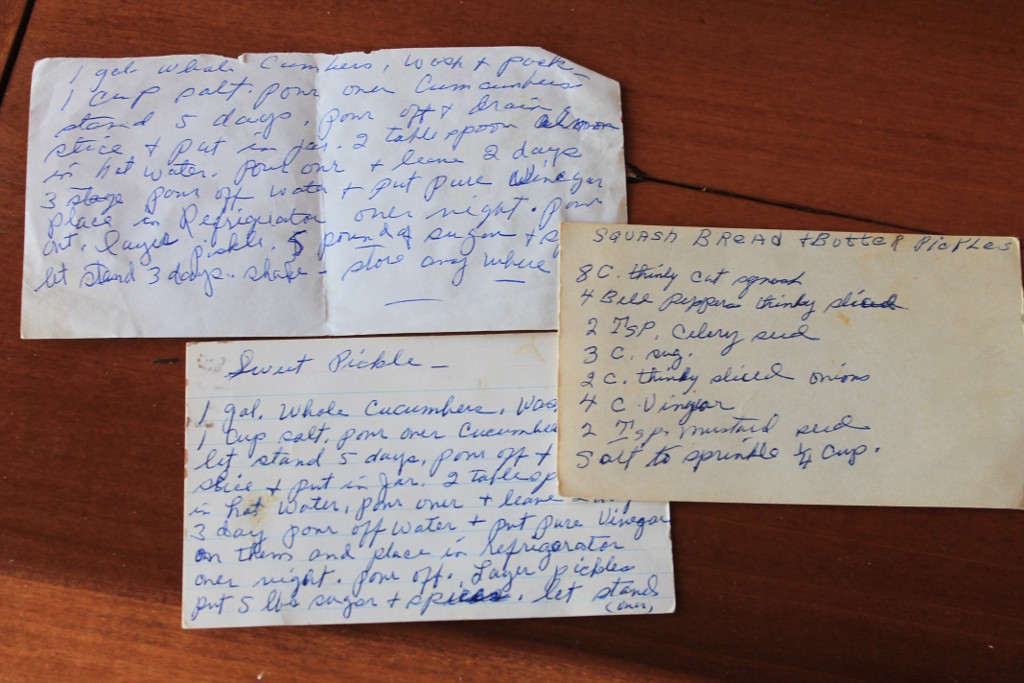 1 gal. whole Cumbers, wash + pack
1 cup salt. pour over Cumcumbers
stand 5 days. pour off + drain,
slice + put in jar. 2 table spoon
in hot water. pour over + leave 2 days
3 stage pour off water + put pure Vinegar
place in Refrigerator over night. pour
out. layer pickle. 5 pounds sugar + sp
let stand 3 days. shake - store any where
Sweet Pickle -
1 gal. whole Cucumbers, was
1 cup salt. pour over Cucumbe
let stand 5 days, pour off +
slice + put in jar. 2 tablesp
in hot water, pour over + leave
3 day pour off water + put pure Vinegar
on them and place in refrigerator
over night. pour off. Layer pickles
put 5 lbs sugar + spices. let stand
(over)
SQUASH BREAD + BUTTER PICKLES
8 C. thinly cut squash
4 Bell peppers thinly sliced
2 Tsp. Celery seed
3 C. sug.
2 C. thinly sliced onions
4 C Vinegar
2 Tsp. mustard seed
Salt to sprinkle 1/4 cup.